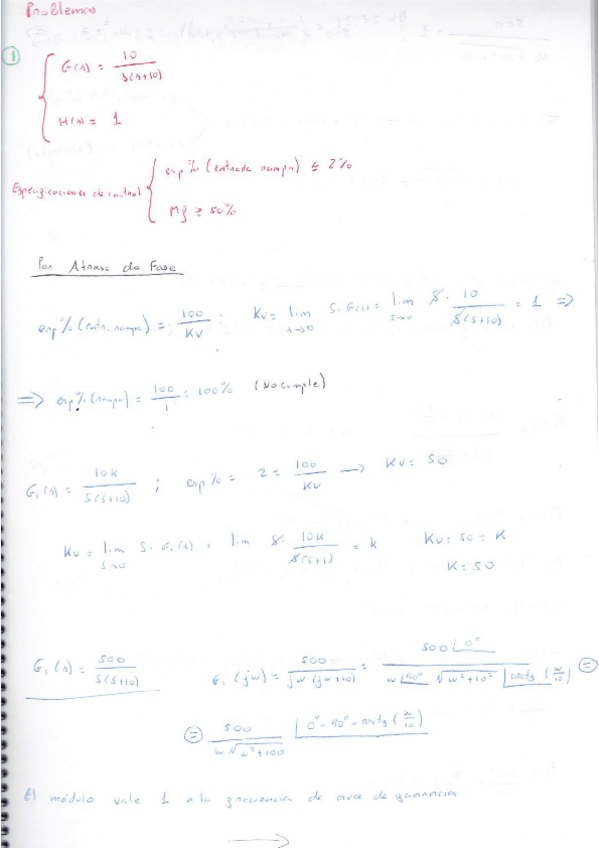 Problemas
1
G(s) = 10 / s(s+10)
H(s) = 1
Especificaciones de control
erp% (entrada rampa) ≤ 2%
Mf ≥ 50%
Por Atraso de Fase
erp% (entr. rampa) = 100/Kv ; Kv = lim s→0 s·G(s) = lim s→0 s· 10 / s(s+10) = 1 ⇒
⇒ erp% (rampa) = 100/1 = 100% (No cumple)
G₁(s) = 10k / s(s+10) ; erp% = 2 = 100/Kv → Kv = 50
Kv = lim s→0 s·G₁(s) = lim s· 10k / s(s+1) = k Kv = 50 = K
K = 50
G₁(s) = 500 / s(s+10) G₁(jw) = 500 / jw(jw+10) = 500∠0° / w∠90° √w²+10² ∠arctg(w/10) =
= 500 / w√w²+100 ∠0°-90°-arctg(w/10)
El módulo vale 1 a la frecuencia de cruce de ganancia
→